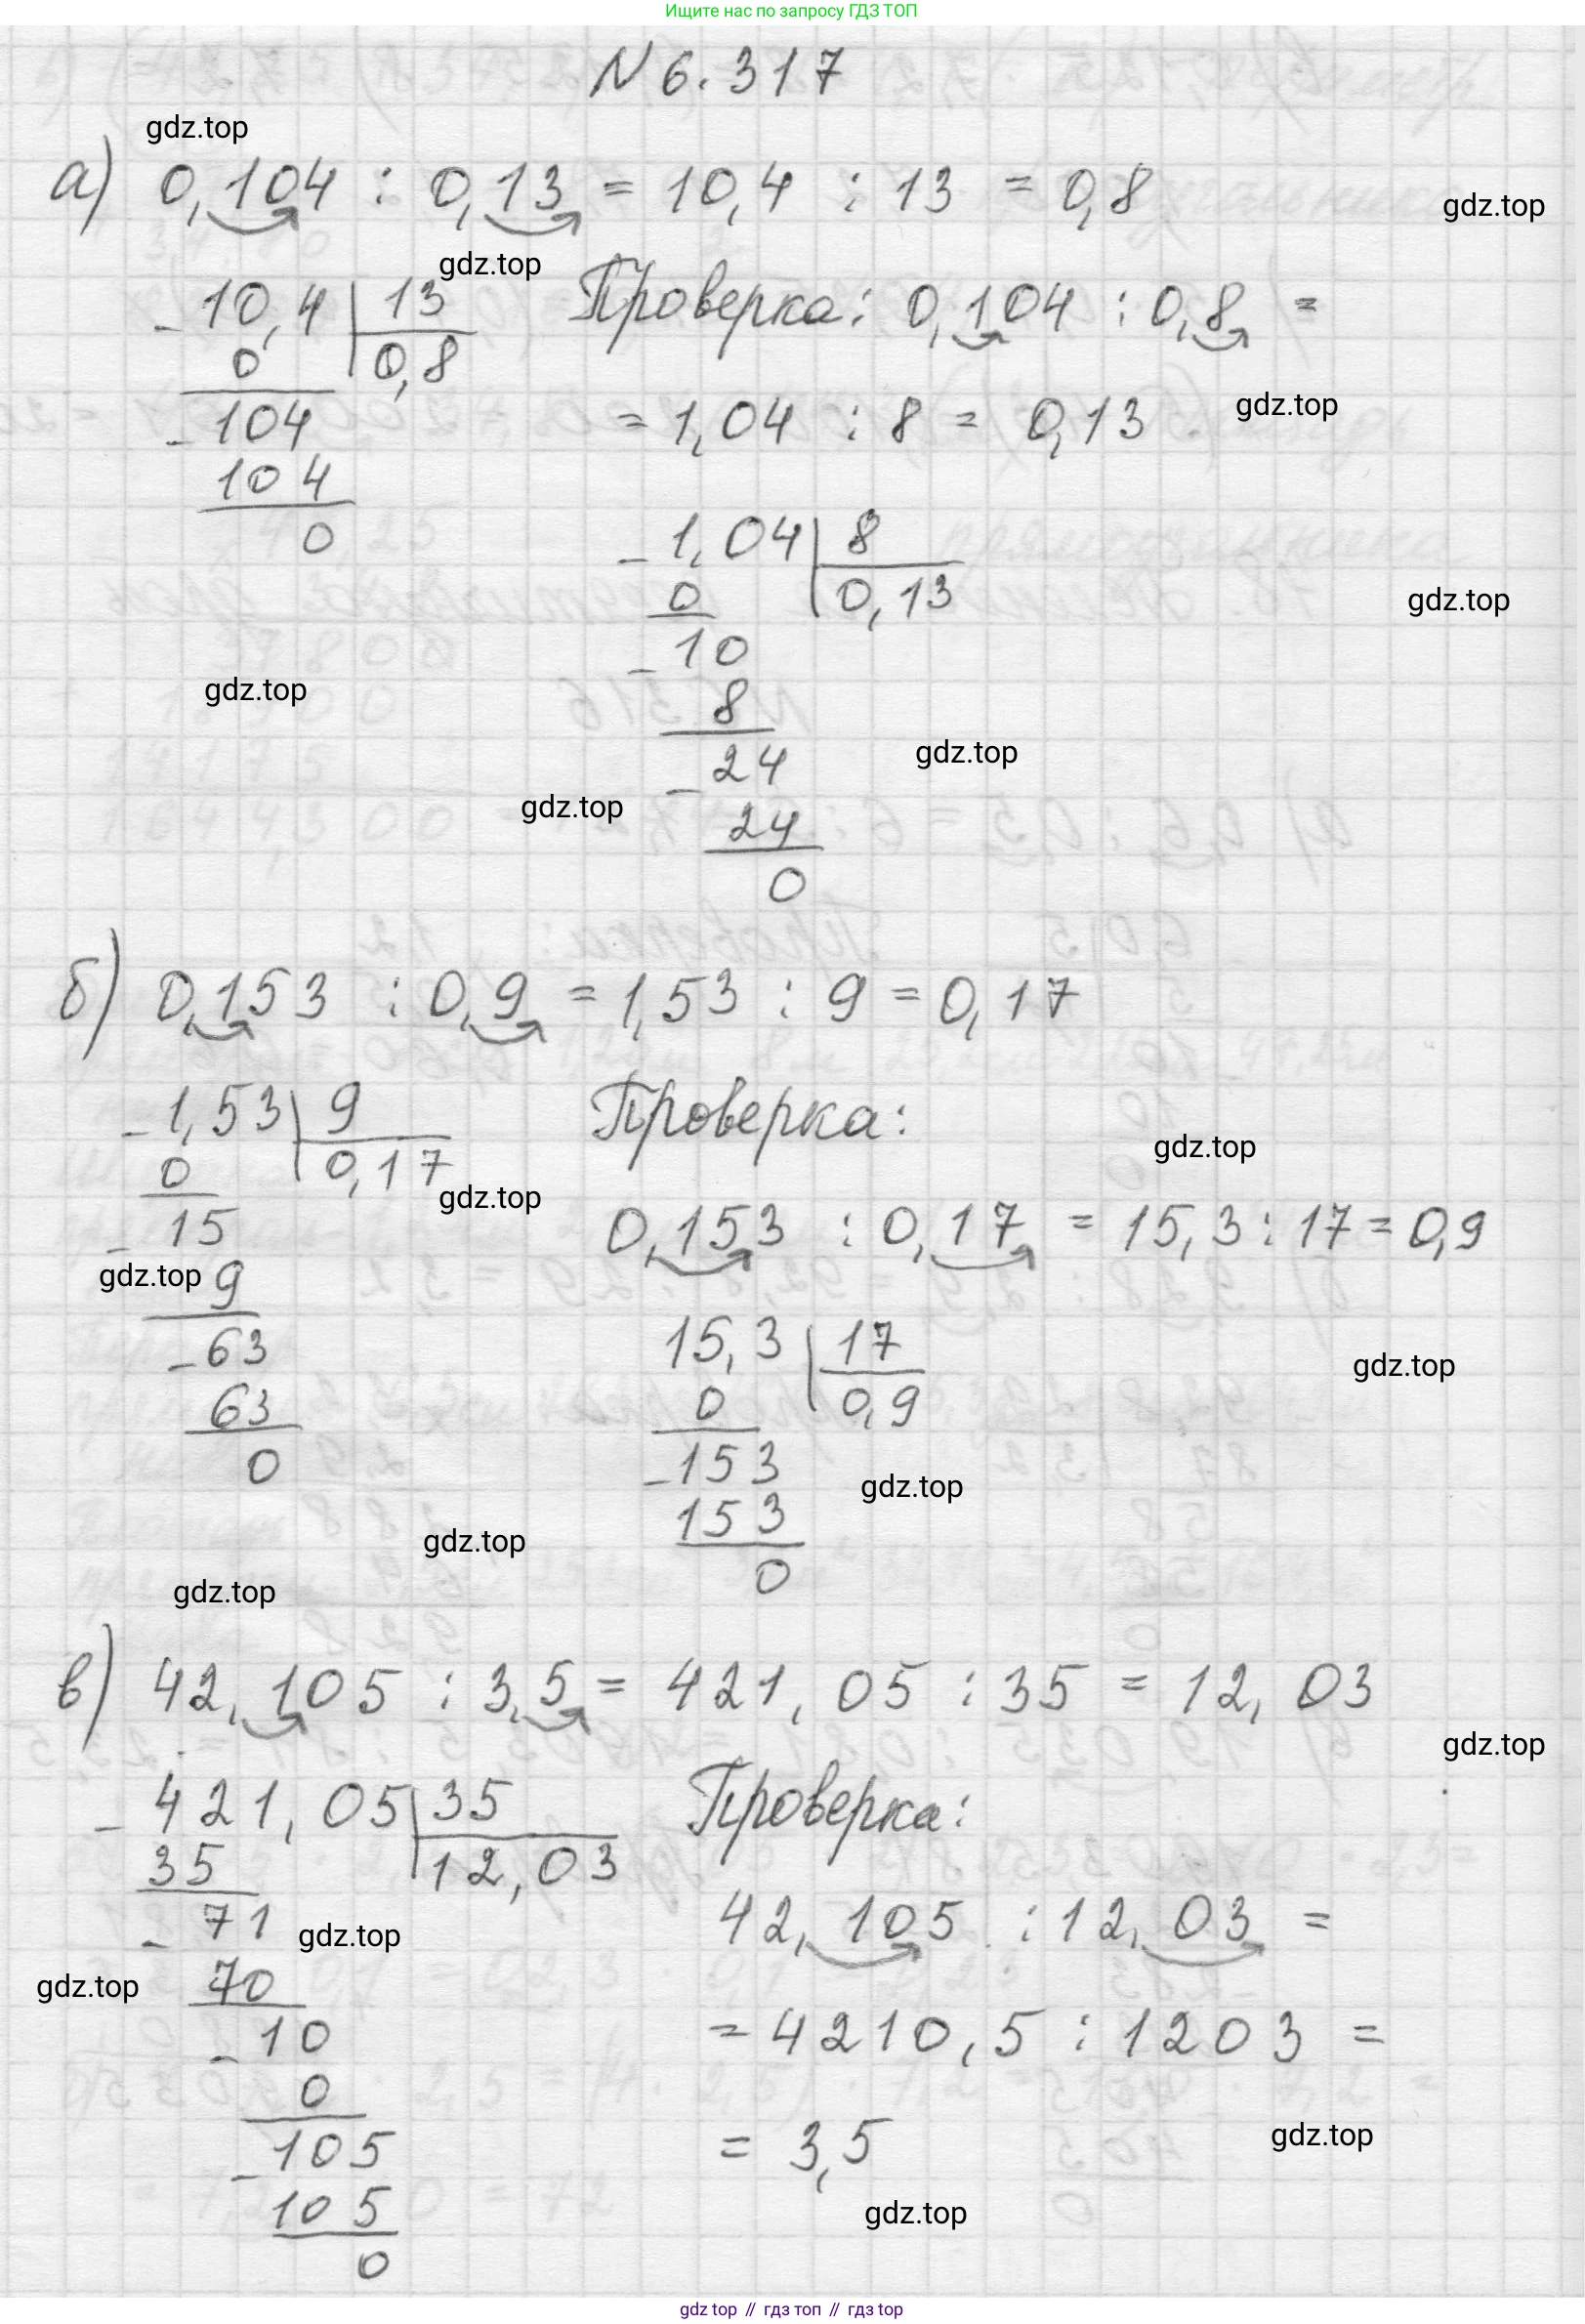 Ищите нас по запросу ГДЗ ТОП
N 6.317
gdz.top
а) 0,104 : 0,13 = 10,4 : 13 = 0,8
gdz.top
gdz.top
- 10,4 | 13
0 | 0,8
- 104
104
0
Проверка: 0,104 : 0,8 =
gdz.top
= 1,04 : 8 = 0,13
- 1,04 | 8
0 | 0,13
gdz.top
- 10
gdz.top
8
gdz.top
- 24
gdz.top
24
0
б) 0,153 : 0,9 = 1,53 : 9 = 0,17
- 1,53 | 9
0 | 0,17
- 15
gdz.top
gdz.top
9
- 63
63
0
Проверка:
gdz.top
0,153 : 0,17 = 15,3 : 17 = 0,9
15,3 | 17
0 | 0,9
gdz.top
- 153
gdz.top
153
gdz.top
0
gdz.top
в) 42,105 : 3,5 = 421,05 : 35 = 12,03
gdz.top
- 421,05 | 35
35 | 12,03
- 71
gdz.top
gdz.top
70
- 10
0
- 105
105
0
Проверка:
42,105 : 12,03 =
= 4210,5 : 1203 =
gdz.top
= 3,5
gdz.top
gdz top // гдз топ // гдз top